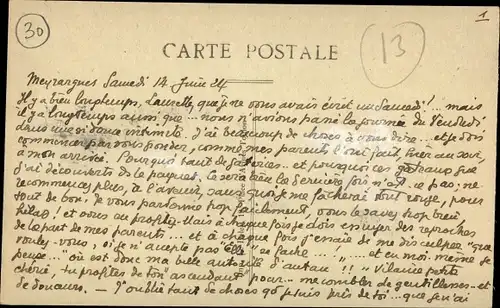 30
13
1
CARTE POSTALE
Meyrargues Samedi 14 Juin 24
Il y a bien longtemps, que je ne vous avais écrit un Samedi!... mais
il y a longtemps aussi que... nous n'avions passé la journée du Vendredi
dans une si douce intimité. J'ai beaucoup de choses à vous dire... et je dois
commencer par vous gronder, comme mes parents l'ont fait, hier au soir,
à mon arrivée. Pourquoi tant de gâteries... et pourquoi ces que
j'ai découverts de le paquet. Ce sera bien la dernière fois n'est-ce pas; ne
recommencez plus, à l'avenir, sans quoi je me fâcherai tout rouge, pour
tout de bon. Je vous pardonne trop facilement, vous le savez trop bien
hélas, et vous en profitez. Mais à chaque fois je dois envoyer des reproches
de la part de mes parents... et à chaque fois j'essaie de me disculper "que
voulez-vous, si je n'accepte pas elle se fâche... "... et en moi-même je
pense..." où est donc ma belle autorité d'antan!! » Vilaine petite
chérie, tu profites de ton ascendant pour... me combler de gentillesses et
de douceurs. — J'oublie tant de choses qd je suis près de toi... que j'en ai